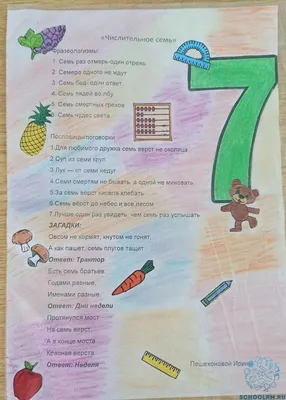 «Числительное семь»
Фразеологизмы:
1. Семь раз отмерь-один отрежь
2. Семеро одного не ждут
3. Семь бед один ответ
4. Семь пядей во лбу
5. Семь смертных грехов
6. Семь чудес света
Пословицы/поговорки
1.Для любимого дружка семь верст не околица
2.Суп из семи круп
3.Лук — от семи недуг
4.Семи смертям не бывать, а одной не миновать
5.За семь верст киселя хлебать
6.Семь вёрст до небес и все лесом
7.Лучше один раз увидеть, чем семь раз услышать
ЗАГАДКИ:
Овсом не кормят, кнутом не гонят,
А как пашет, семь плугов тащит
Ответ: Трактор
Есть семь братьев:
Годами равные,
Именами разные.
Ответ: Дни недели
Протянулся мост
На семь верст,
А в конце моста
Красная верста.
Ответ: Неделя
Пешехоновой Ирины
7
SCHOOLPM.RU